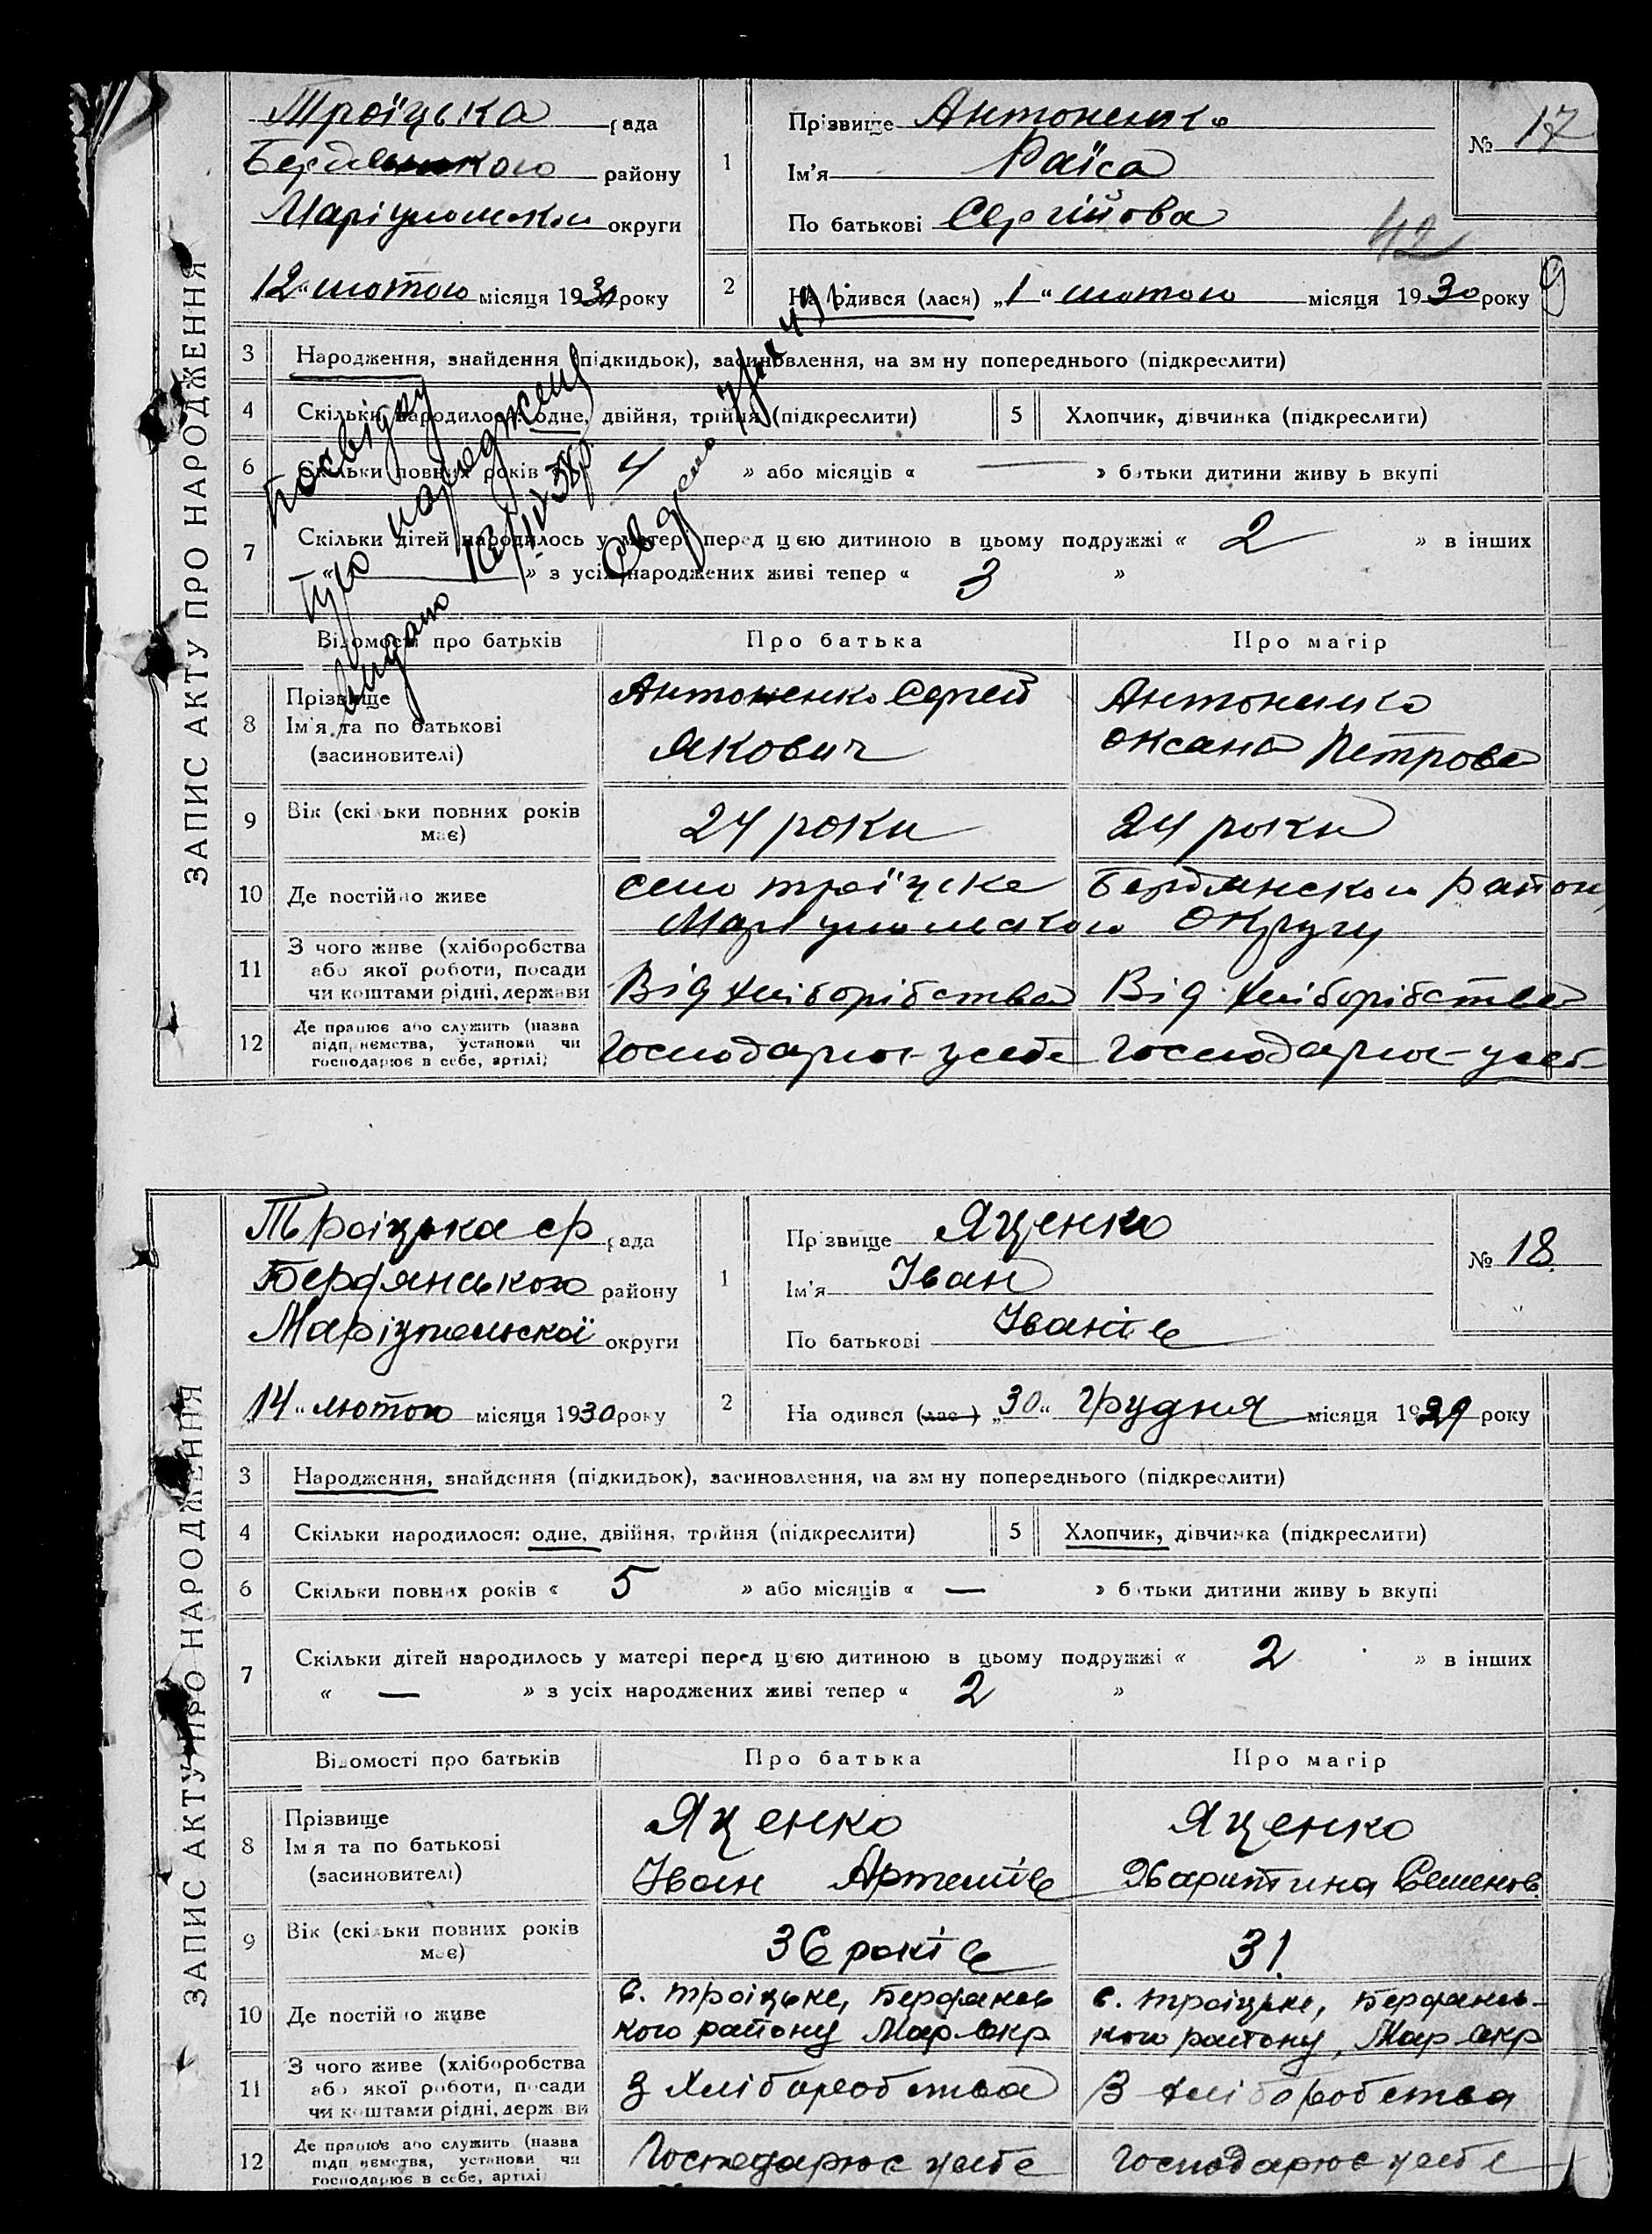 ЗАПИС АКТУ ПРО НАРОДЖЕННЯ
Троїцька рада
Бердянского району
Маріупольскои округи
12 „ лютого місяця 1930 року
1 Прізвище Антоненко
Ім'я Раїса
По батькові Сергійова
№ 17
42
2 Народився (лася) „1“ лютого місяця 1930 року
3 Народження, знайдення (підкидьок), засиновлення, на зміну попереднього (підкреслити)
4 Скільки народилося: одне, двійня, трійня (підкреслити)
5 Хлопчик, дівчинка (підкреслити)
6 Скільки повних років « 4 » або місяців « — » батьки дитини живуть вкупі
7 Скільки дітей народилось у матері перед цією дитиною в цьому подружжі « 2 » в інших
« — » з усіх народжених живі тепер « 3 »
Посвідку
про народжену
видано
Відомості про батьків Про батька Про матір
8 Прізвище
Ім'я та по батькові
(засиновителі)
Антоненко Сергей
Якович
Антоненко
Оксана Петрова
9 Вік (скільки повних років
має)
24 роки
24 роки
10 Де постійно живе
село троїцке Бердянского району
Маріупольского Округу
11 З чого живе (хліборобства
або якої роботи, посади
чи коштами рідні, держави
Від хліборібства
Від хліборібства
12 Де працює або служить (назва
підприємства, установи чи
господарює в себе, артілі)
Господарює усебе
Господарює усеб
ЗАПИС АКТУ ПРО НАРОДЖЕННЯ
Троіцька ср рада
Бердянського району
Маріупольскої округи
„14“ лютого місяця 1930 року
1 Прізвище Яценко
Ім'я Іван
По батькові Іванів
№ 18.
2 Народився (лас ) „30“ грудня місяця 1929 року
3 Народження, знайдення (підкидьок), засиновлення, на зміну попереднього (підкреслити)
4 Скільки народилося: одне, двійня, трійня (підкреслити)
5 Хлопчик, дівчинка (підкреслити)
6 Скільки повних років « 5 » або місяців « — » батьки дитини живуть вкупі
7 Скільки дітей народилось у матері перед цією дитиною в цьому подружжі « 2 » в інших
« — » з усіх народжених живі тепер « 2 »
Відомості про батьків Про батька Про матір
8 Прізвище
Ім'я та по батькові
(засиновителі)
Яценко
Іван Артемів
Яценко
Харитина Семенов.
9 Вік (скільки повних років
має)
36 років
31.
10 Де постійно живе
с. троіцьке, Бердянсь
кого району Мар Окр
с. троіцьке, Бердянсь-
кого району, Мар Окр
11 З чого живе (хліборобства
або якої роботи, посади
чи коштами рідні, держави
З хліборобства
З хліборобства
12 Де працює або служить (назва
підприємства, установи чи
господарює в себе, артілі
Господарює усебе
Господарює усебе